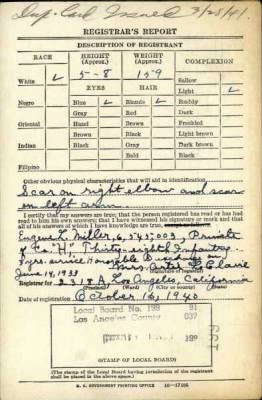 Dup. Card Issued 3/25/41.
REGISTRAR'S REPORT
DESCRIPTION OF REGISTRANT
RACE HEIGHT (Approx.) WEIGHT (Approx.) COMPLEXION
White 5-8 159 Sallow
EYES HAIR Light
Negro Blue Blonde Ruddy
Gray Red Dark
Oriental Hazel Brown Freckled
Brown Black Light brown
Indian Black Gray Dark brown
Bald Black
Filipino
Other obvious physical characteristics that will aid in identification
Scar on right elbow and scar
on left arm.
I certify that my answers are true; that the person registered has read or has had
read to him his own answers; that I have witnessed his signature or mark and that
all of his answers of which I have knowledge are true, except as follows:
Eugene L. Miller, 6,547,003, Private
of Co "H", Thirty-eighth Infantry.
3 yrs. service Honorable Discharge on
June 14, 1938 Mrs.
(Signature of registrar)
Registrar for 2318 A Los Angeles, California
(Precinct) (Ward) (City or county) (State)
Date of registration October 16, 1940
Local Board No. 199 91
Los Angeles County 037
199
(STAMP OF LOCAL BOARD)
(The stamp of the Local Board having jurisdiction of the registrant
shall be placed in the above space.)
U. S. GOVERNMENT PRINTING OFFICE 16—17105